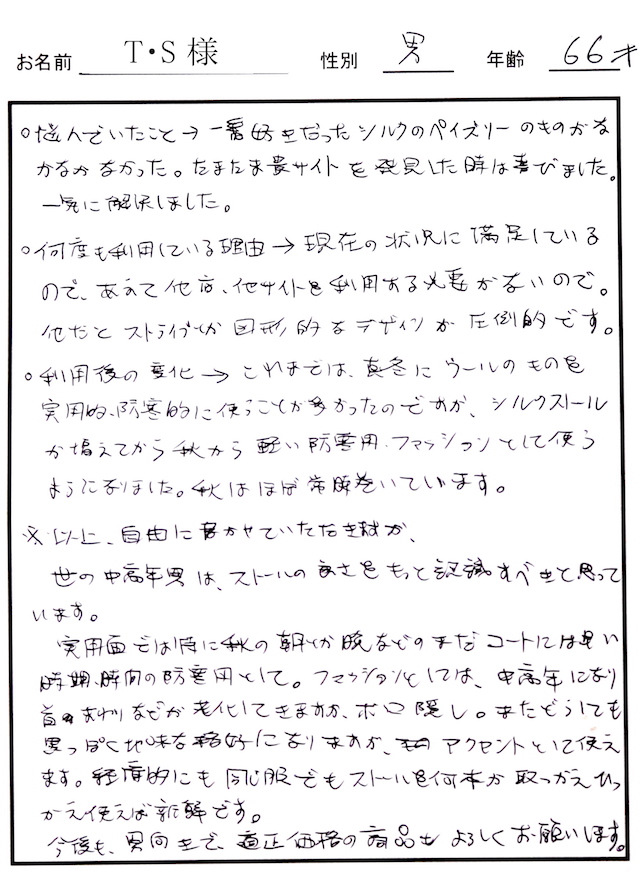 お名前 T・S様 性別 男 年齢 66才
○悩んでいたこと→一番好きだったシルクのペイズリーのものがな
かなかなかった。たまたま貴サイトを発見した時は喜びました。
一気に解決しました。
○何度も利用している理由→現在の状況に満足している
ので、あえて他店、他サイトを利用する必要がないので。
他だとストライプとか図形的なデザインが圧倒的です。
○利用後の変化→これまでは、真冬にウールのものを
実用的、防寒的に使うことが多かったのですが、シルクストール
が増えてから秋から軽い防寒用、ファッションとして使う
ようになりました。秋はほぼ常時巻いています。
※以上、自由に書かせていただきましたが、
世の中高年男は、ストールの良さをもっと認識すべきと思って
います。
実用面では特に秋の朝とか晩などのまだコートには早い
時期、時間の防寒用として。ファッションとしては、中高年になり
首まわりなどが老化してきますが、ボロ隠し。またどうしても
黒っぽく地味な格好になりますが、アクセントとして使え
ます。程度的にも同じ服でもストールを何本か取っかえひっ
かえ使えば新鮮です。
今後も、男向きで、適正価格の商品をよろしくお願いします。